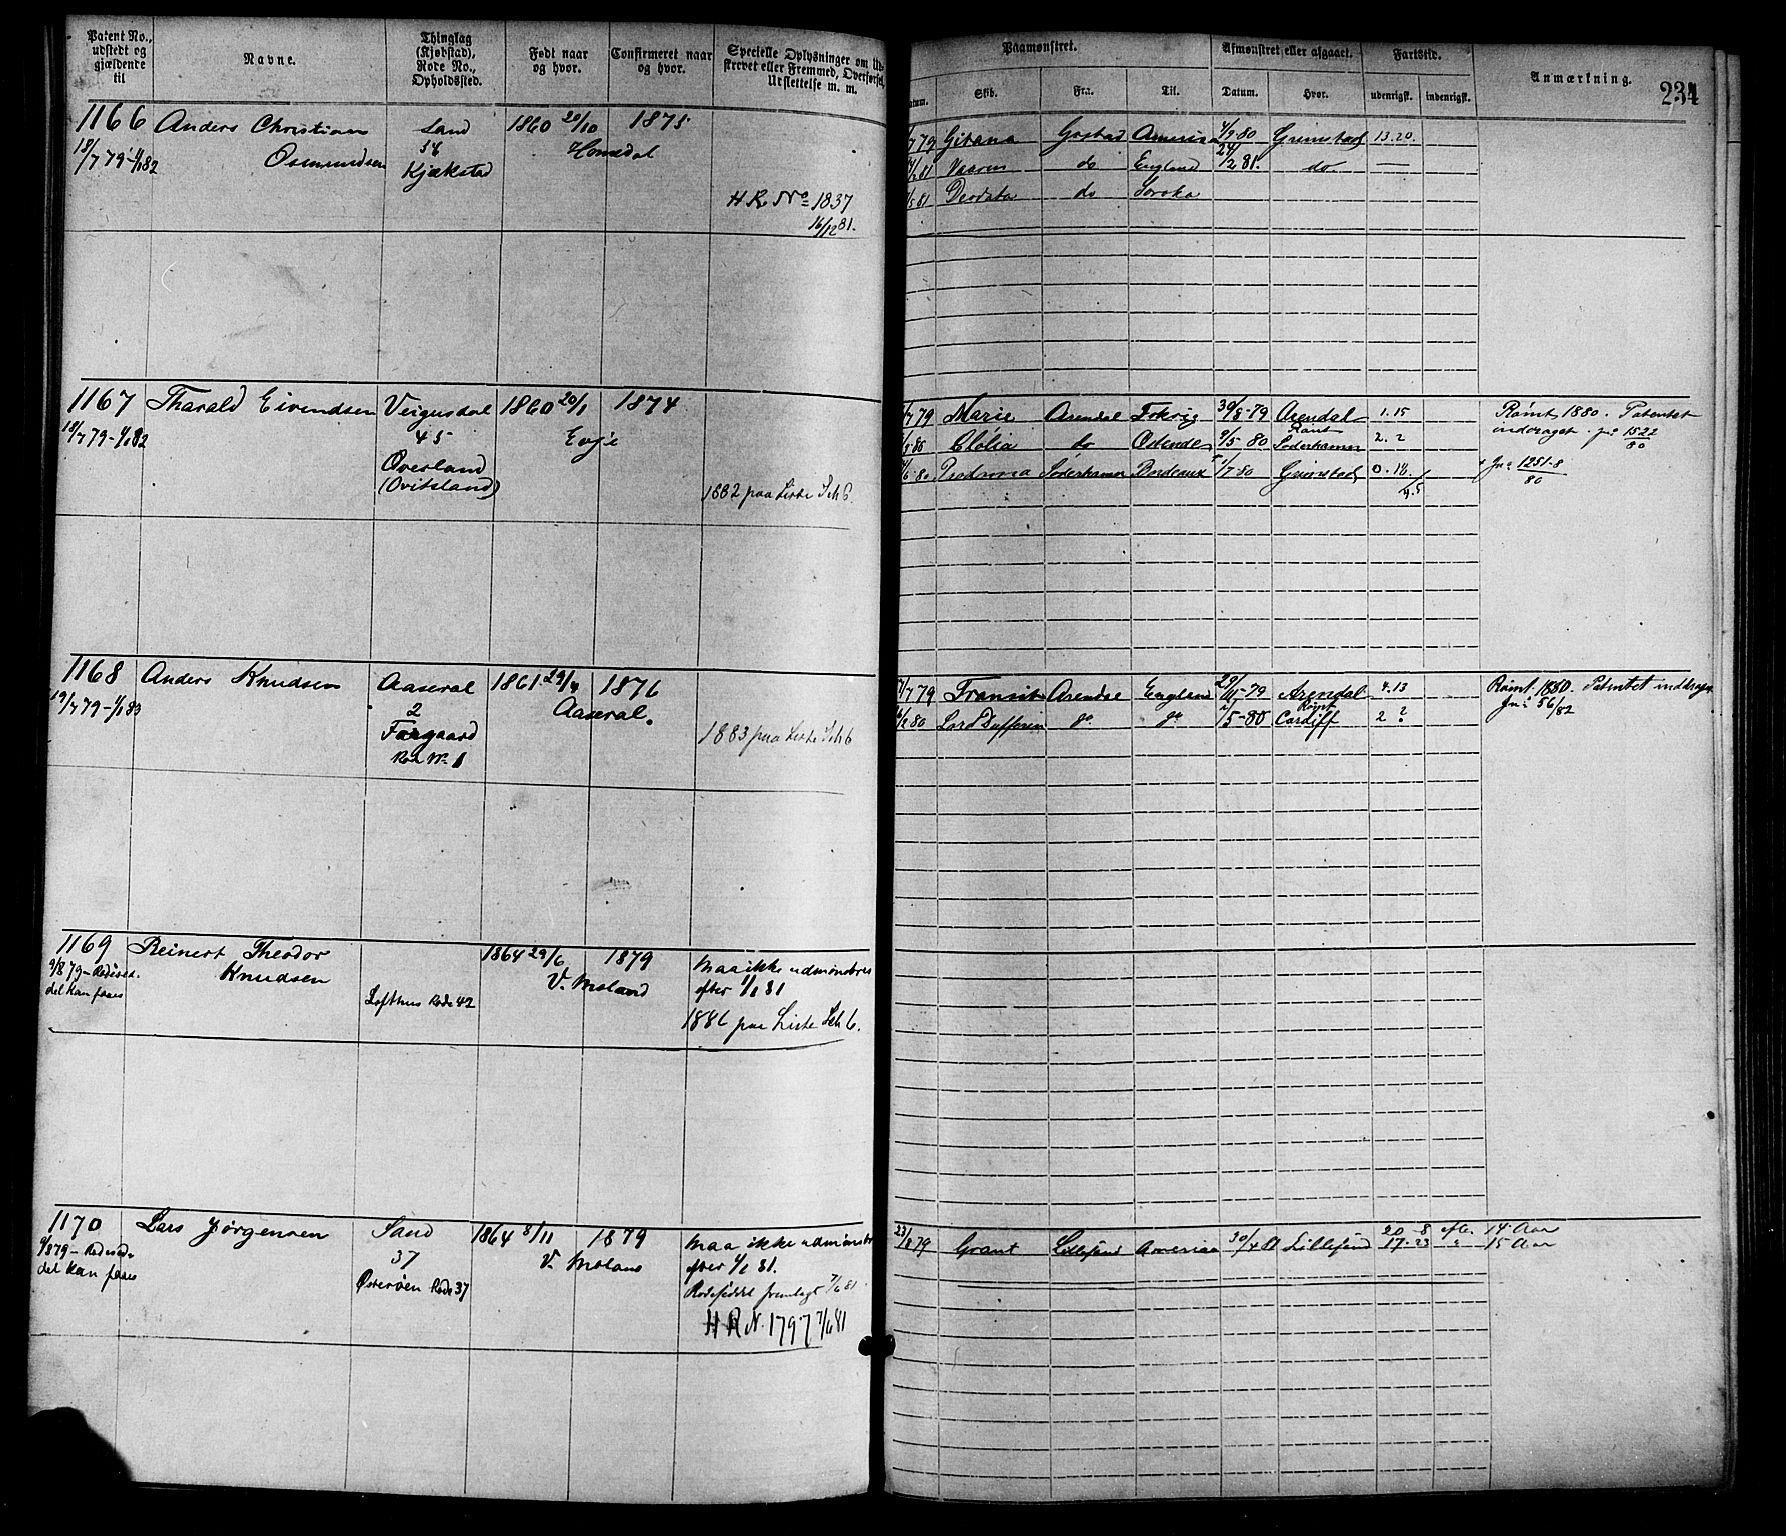 Patent No.,
udstedt og
gjældende
til
Navne.
Thinglag
(Kjøbstad),
Rode No.,
Opholdssted.
Født naar
og hvor.
Confirmeret naar
og hvor.
Specielle Oplysninger om Ud-
skrevet eller Fremmed, Overførsel,
Udslettelse m. m.
Paamønstret.
Afmønstret eller afgaaet.
Fartstid.
Anmærkning.
234
Skib.
Fra.
Til.
Datum.
Hvor.
udenrigsk.
indenrigsk.
1166
Anders Christian
Osmundsen
18/7 79-1/1 82
Sand
38
Kjækstad
1860 20/10
Homedal
1875
H R No 1837
16/12 81.
79 Gitana Grstad America 4/9 80 Grimstad 13.20.
81 Vaaren do England 24/2 81. do. —
81 Deodata do Soroka
1167
18/7 79-1/1 82
Tharald Eivendsen
Veigusdal
45
Overland
(Ovitsland)
1860 20/1
Evje
1874
1882 paa Liste Sch 6.
79 Marie Arendal Fokvig 30/8-79 Arendal 1.15
80 Clölia do Ostende 9/5 80 Rømt Söderhamn 2.?
6 80 Prodroma Söderhamn Bordeaux /7-80 Grimstad 0.18.
Rømt 1880. Patentet
inddraget. jn: 1522/80
jn: 1251-8/80
1168
19/7 79-1/1 83
Anders Knudsen
Aaseral
2
Fargaard
Rod No 1
1861 29/4
Aaseral.
1876
1883 paa Liste Sch 6
7/7 79 Transit Arendal England 29/11-79 Arendal 4.13
2 80 Lord Dufferin do do /5-80 Rømt Cardiff 2 ?
Rømt 1880. Patentet inddrag.
Jn: 56/82
1169
9/8 79-Rodesed-
del kan faaes
Reinert Theodor
Knudsen
Lofthus Rode 42
1864 29/6
V. Moland
1879
Maa ikke udmønstres
efter 1/1 81
1886 paa Liste Sch 6.
1170
9/8 79-Rodesed-
del kan faaes
Lars Jørgensen
Sand
37
Østerøen Rode 37
1864 8/11
V. Moland
1879
Maa ikke udmønstr
efter 1/1 81.
Rodeseddel fremlagt 7/6 81
H R N. 1797 7/6 81
23/8 79 Grant Lillesand America 30/4 81 Lillesand 20-8 efter 14 Aar
17-23 " 15 Aar